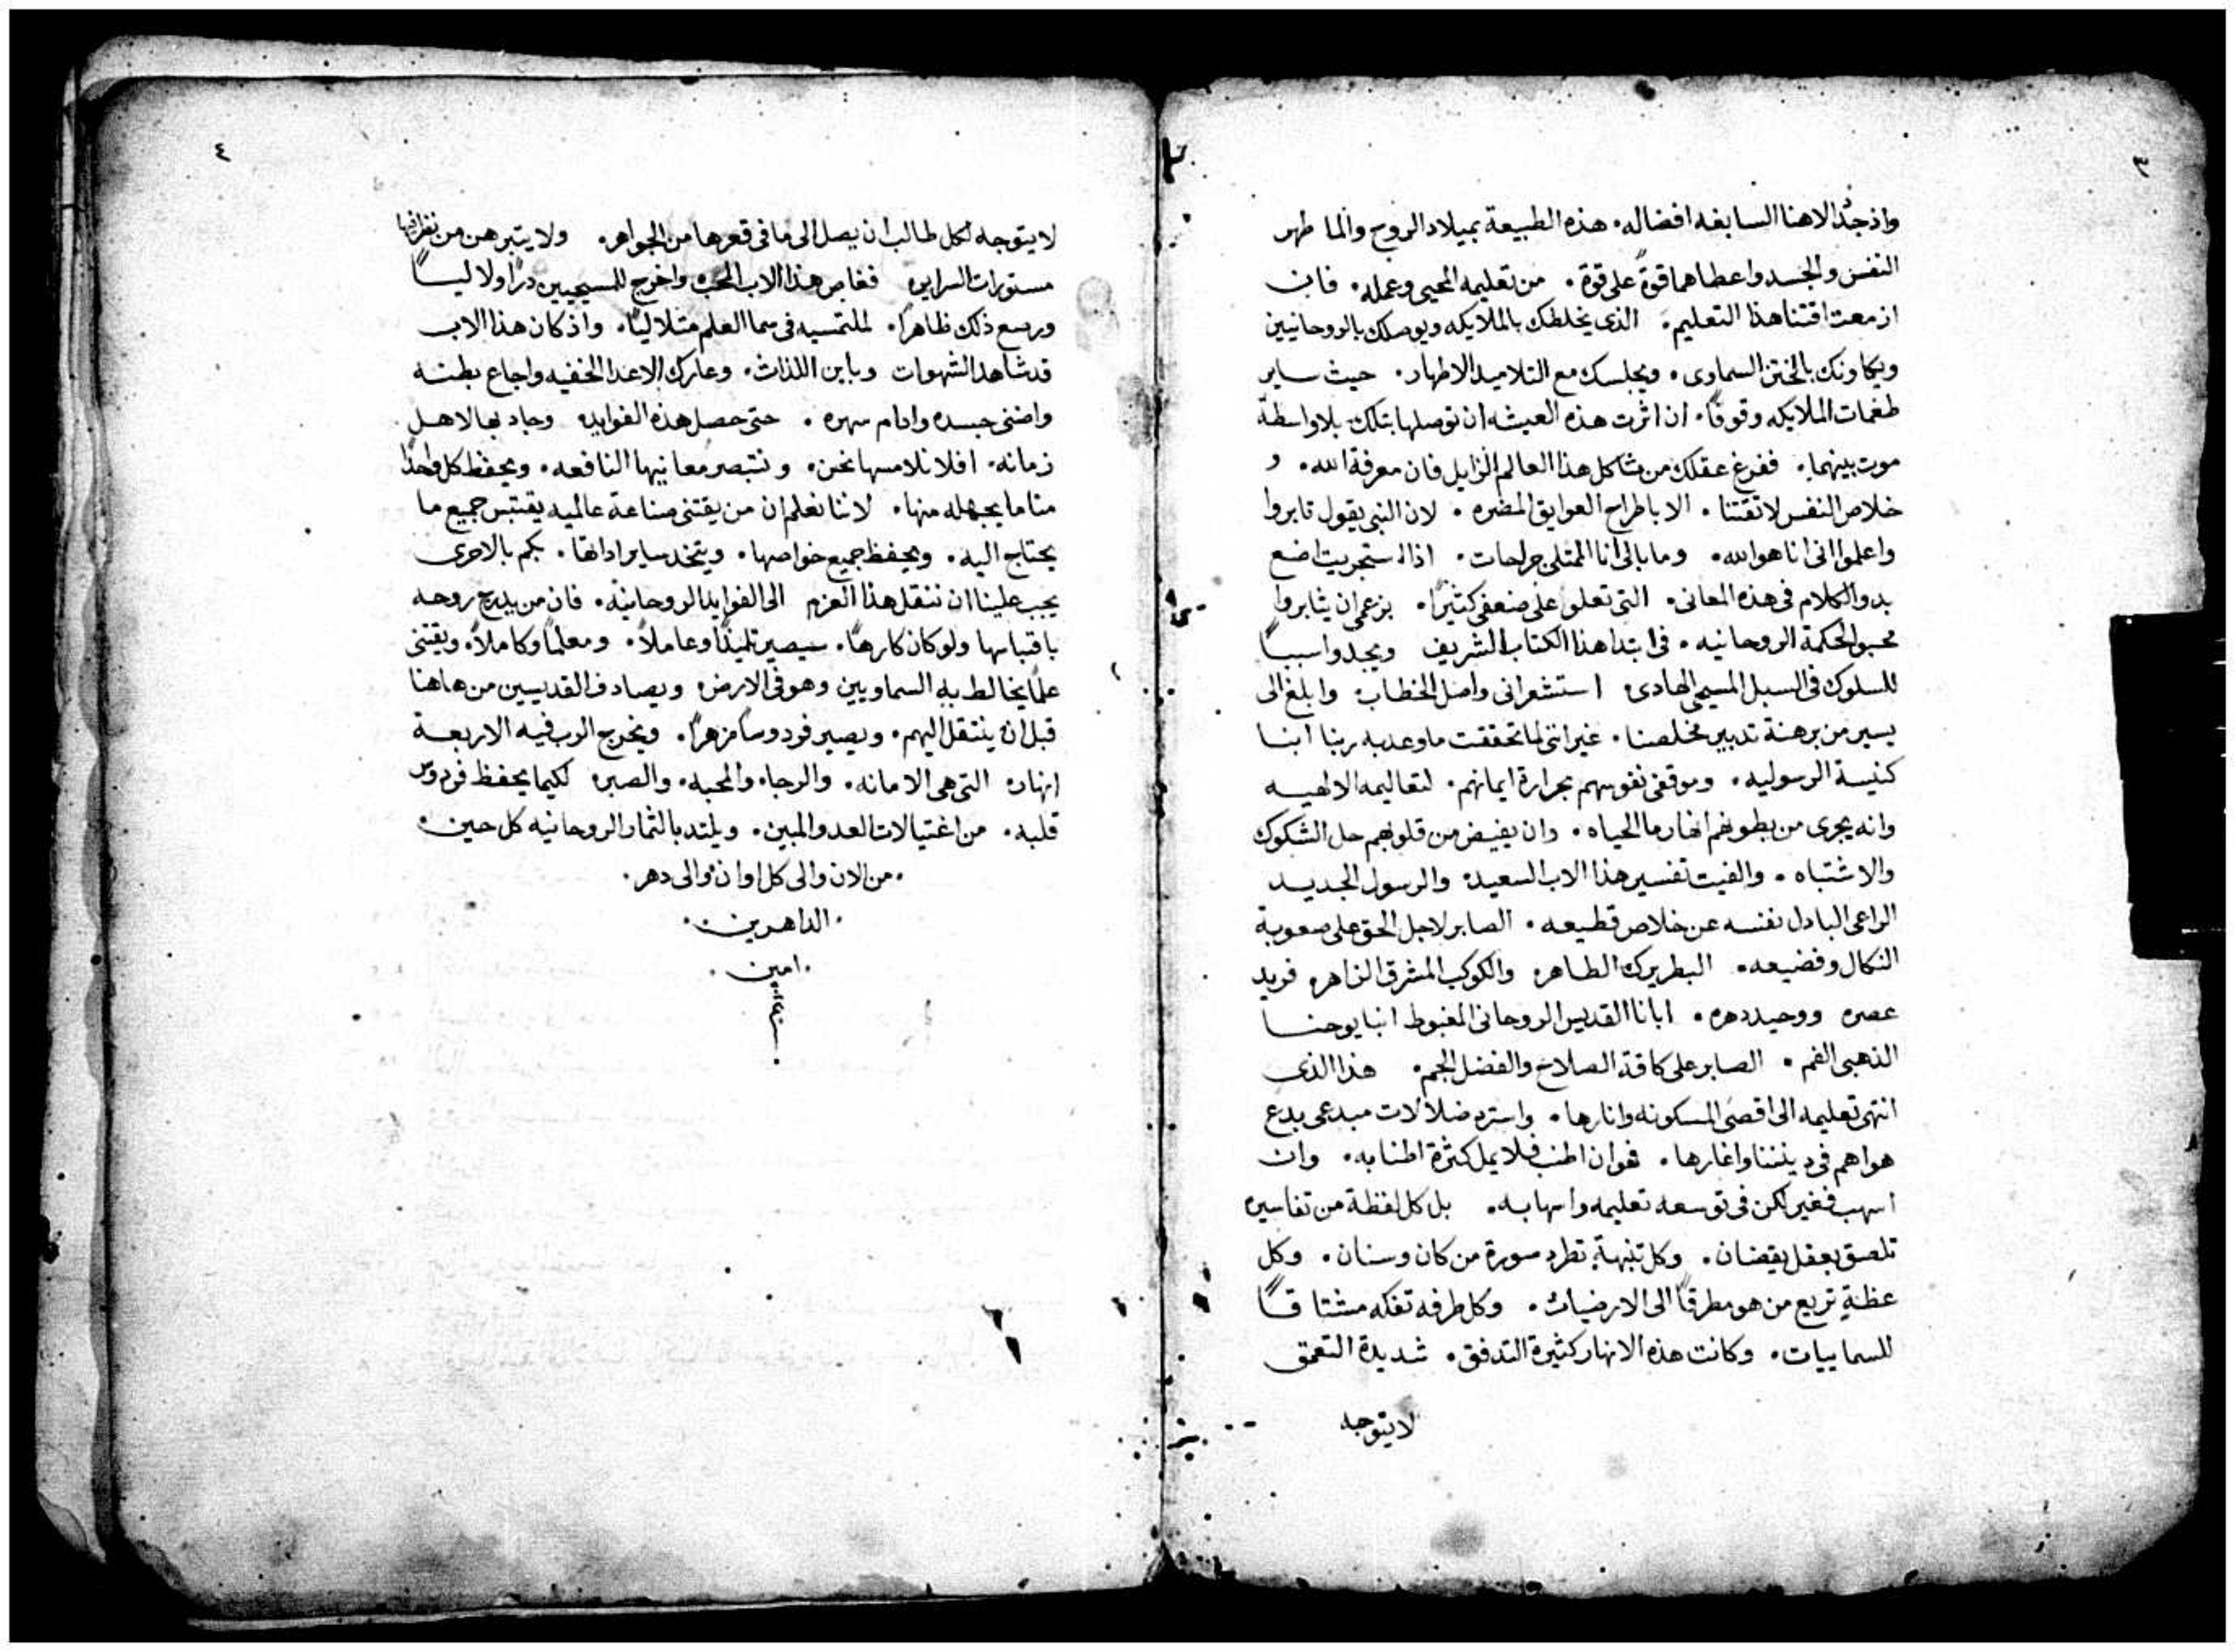 ٣
واذ جدد الاهنا السابغه افضاله. هذه الطبيعة بميلاد الروح والما طهر
النفس والجسد واعطاهما قوةً على قوة. من تعليمه المحيي وعمله. فان
ازمعت اقتنا هذا التعليم. الذي يخلطك بالملايكه ويوصلك بالروحانيين
بالختن السماوى. ويجلسك مع التلاميد الاطهار. حيث ساير
طغمات الملايكه وقوفًا. ان اثرت هذه العيشه ان توصلها بتلك بلا واسطة
موت بينهما. ففرغ عقلك من مشاكل هذا العالم الزايل فان معرفة الله. و
خلاص النفس لا تقتنا. الا باطراح العوايق المضره. لان النبي يقول ثابروا
واعلموا انى انا هو الله. وما بالى انا الممتلى جراحات. اذا استجريت اضع
بدو الكلام فى هذه المعانى. التى تعلوا على ضعفى كثيرًا. بزعمى ان يثابروا
محبو الحكمة الروحانيه. فى ابتدا هذا الكتاب الشريف ويجدوا سببًا
للسلوك فى السبل المسيحي الهادى. استشعرانى واصل الخطاب وابلغ الى
يسير من برهنة تدبير مخلصنا. غير اننى لما تحققت ما وعد به ربنا ابنا
كنيسة الرسوليه. وموقفى نفوسهم بحرارة ايمانهم. لتعاليمه الالهيه
وانه يجرى من بطونهم انهار ما الحياه. وان يفيض من قلوبهم حل الشكوك
والاشتباه. والفيت تفسير هذا الاب السعيد. والرسول الجديد
الراعى البادل نفسه عن خلاص قطيعه. الصابر لاجل الحق على صعوبة
النكال وفضيعه. البطريرك الطاهر. والكوكب المشرق الزاهر. فريد
عصره ووحيد دهره. ابانا القديس الروحانى المغبوط انبا يوحنا
الذهبى الفم. الصابر على كافة الصلاح والفضل الجم. هذا الذى
انتهى تعليمه الى اقصى المسكونه وانارها. واسترد ضلالات مبدعى بدع
هواهم فى ديننا واغارها. فهو ان اطنب فلا يمل كثرة اطنابه. وان
اسهب فغير لكن فى توسعه تعليمه واسهابه. بل كل لفظة من تفاسيره
تلصق بعقل يقضان. وكل تنبهةٍ تطرد سورة من كان وسنان. وكل
عظةٍ تريع من هو مطرقًا الى الارضيات. وكل طرفه تفكه مشتاقًا
للسماييات. وكانت هذه الانهار كثيرة التدفق. شديدة التعمق
لا يتوجه
٤
لا يتوجه لكل طالب ان يصل الى ما فى قعرها من الجواهر. ولا يتبرهن من
مستورات السراير. فغاص هذا الاب المحب واخرج للمسيحيين دررًا ولاليًا
ورسع ذلك ظاهرًا. لملتمسيه فى سما العلم متلاليًا. واذ كان هذا الاب
قد شاهد الشهوات وباين اللذات. وعارك الاعدا الخفيه واجاع بطنه
واضنى جسده وادام سهره. حتى حصل هذه الفوايد. وجاد بها لاهل
زمانه. افلا نلامسها نحن. ونتبصر معانيها النافعه. ويحفظ كل واحدًا
منا ما يجهله منها. لاننا نعلم ان من يقتنى صناعة عالميه يقتبس جميع ما
يحتاج اليه. ويحفظ جميع خواصها. ويتخد ساير اداتها. بكم بالاحرى
يجب علينا ان ننقل هذا العزم الى الفوايد الروحانيه. فان من يدع روحه
باقتباسها ولو كان كارهًا. سيصير تلميذًا وعاملاً. ومعلمًا وكاملاً. ويقتنى
علمًا يخالط به السماويين وهو فى الارض. ويصادف القديسين من هاهنا
قبل ان ينتقل اليهم. ويصير فردوسًا مزهرًا. ويخرج الرب فيه الاربعة
انهار. التى هى الامانه. والرجاء. والمحبه. والصبر. لكيما يحفظ فردوس
قلبه. من اغتيالات العدو المبين. ويلتد بالثمار الروحانيه كل حين.
.من الان والى كل اوان والى دهر.
.الداهرين.
.امين.